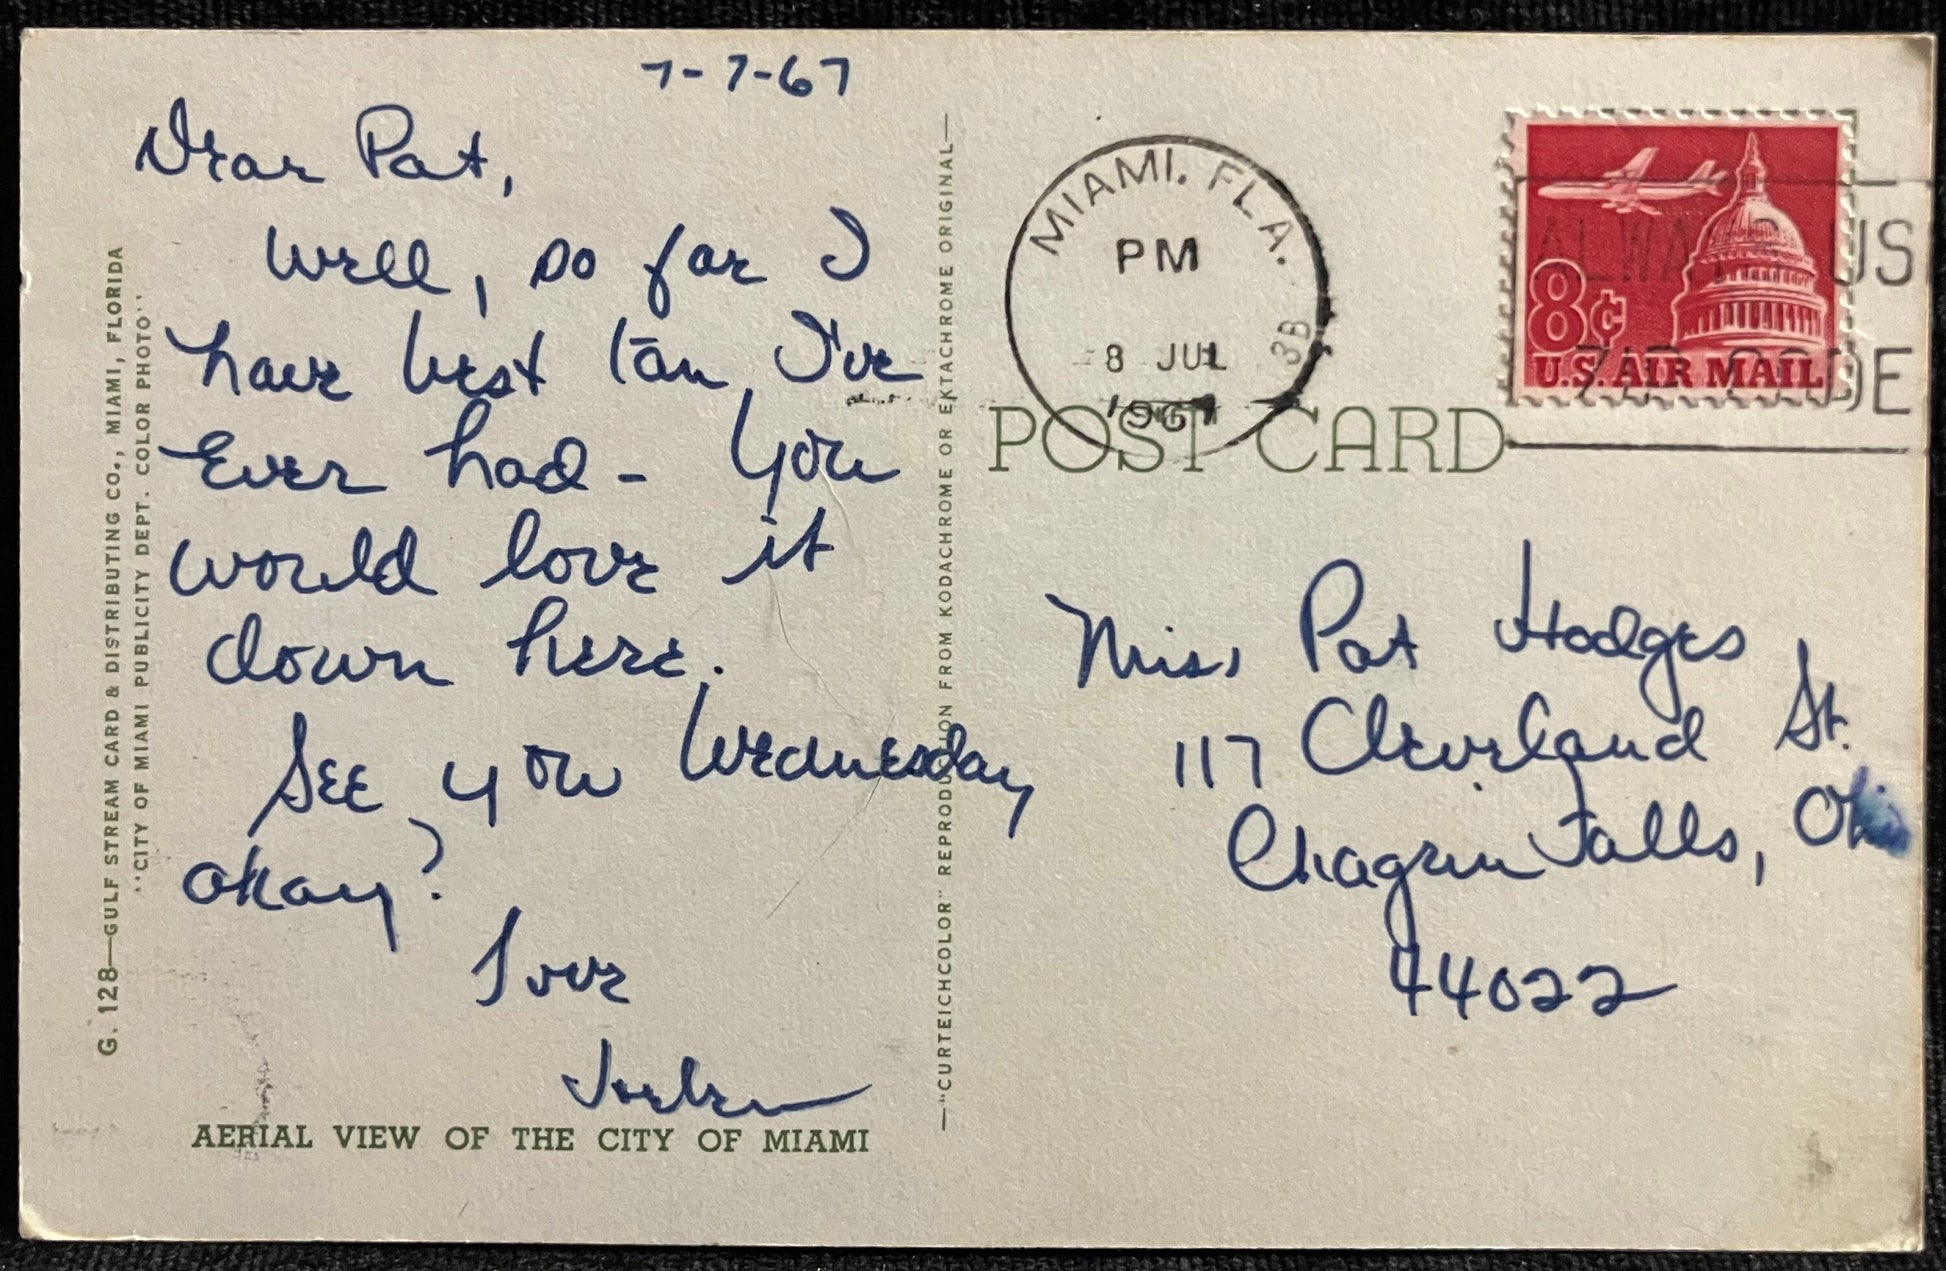 7-7-67
Dear Pat,
Well, so far I
have best tan I've
Ever had - You
would love it
down here.
See you Wednesday
okay?
Love
AERIAL VIEW OF THE CITY OF MIAMI
G. 128—GULF STREAM CARD & DISTRIBUTING CO., MIAMI, FLORIDA
"CITY OF MIAMI PUBLICITY DEPT. COLOR PHOTO"
—"CURTEICHCOLOR" REPRODUCTION FROM KODACHROME OR EKTACHROME ORIGINAL—
MIAMI, FLA.
PM
8 JUL
1967
3B
8¢
U.S. AIR MAIL
ALWAYS US
ZIP CODE
POST CARD
Miss Pat Hodges
117 Cleveland St.
Chagrin Falls, Ohio
44022